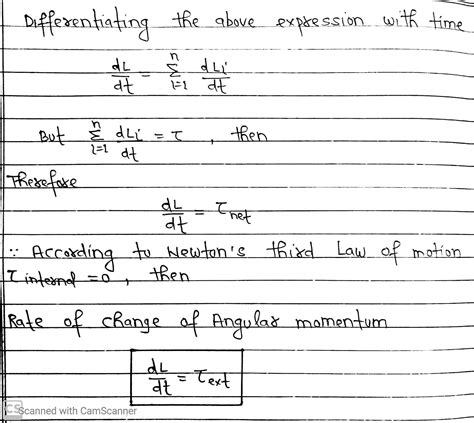 Differentiating the above expression with time
dL/dt = n Σ i=1 dLi/dt
But n Σ i=1 dLi/dt = τ , then
Therefore
dL/dt = τnet
∵ According to Newton's third Law of motion
τ internal = 0 , then
Rate of change of Angular momentum
dL/dt = τext
CS Scanned with CamScanner